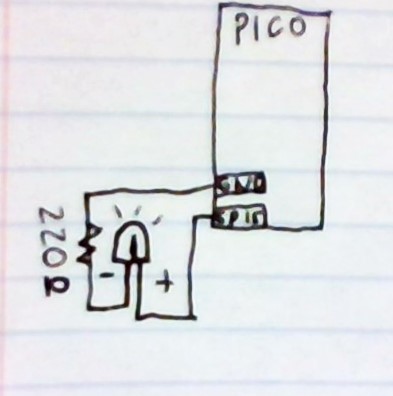 PICO
GND
GP15
220Ω
-
+